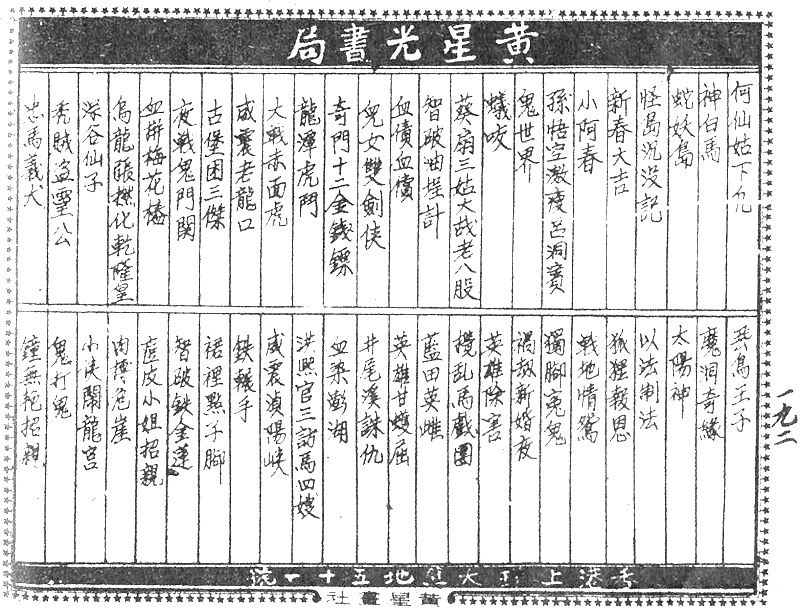 黃星光書局
何仙姑下凡
神白馬
蛇妖島
怪島沉没記
新春大吉
小阿春
孫悟空激瘦呂洞賓
鬼世界
蟻咬
葵扇三姑大战老八股
智破油埕計
血債血償
兒女雙劍俠
奇門十二金錢鏢
龍潭虎鬥
大戰赤面虎
威震老龍口
古堡困三傑
夜戰鬼門関
血拼梅花樁
烏龍
化乾隆皇
深谷仙子
秃賊盗靈公
忠馬義犬
飛鳥王子
魔洞奇緣
太陽神
以法制法
狐狸報恩
戰地情鴛
獨脚冤鬼
禍赦新婚夜
英雄除害
攪乱馬戲團
藍田英雌
英雄甘雙屈
井尾溪誅仇
血染澎湖
洪熙官三訪馬四嫂
威震湞陽峽
鉄
手
裙裡點子脚
智破鉄金蓮
産皮小姐招親
肉搏危崖
小俠鬧龍宮
鬼打鬼
鐘無艷招親
香港上
大
地五十一號
黃星畫社
一九二